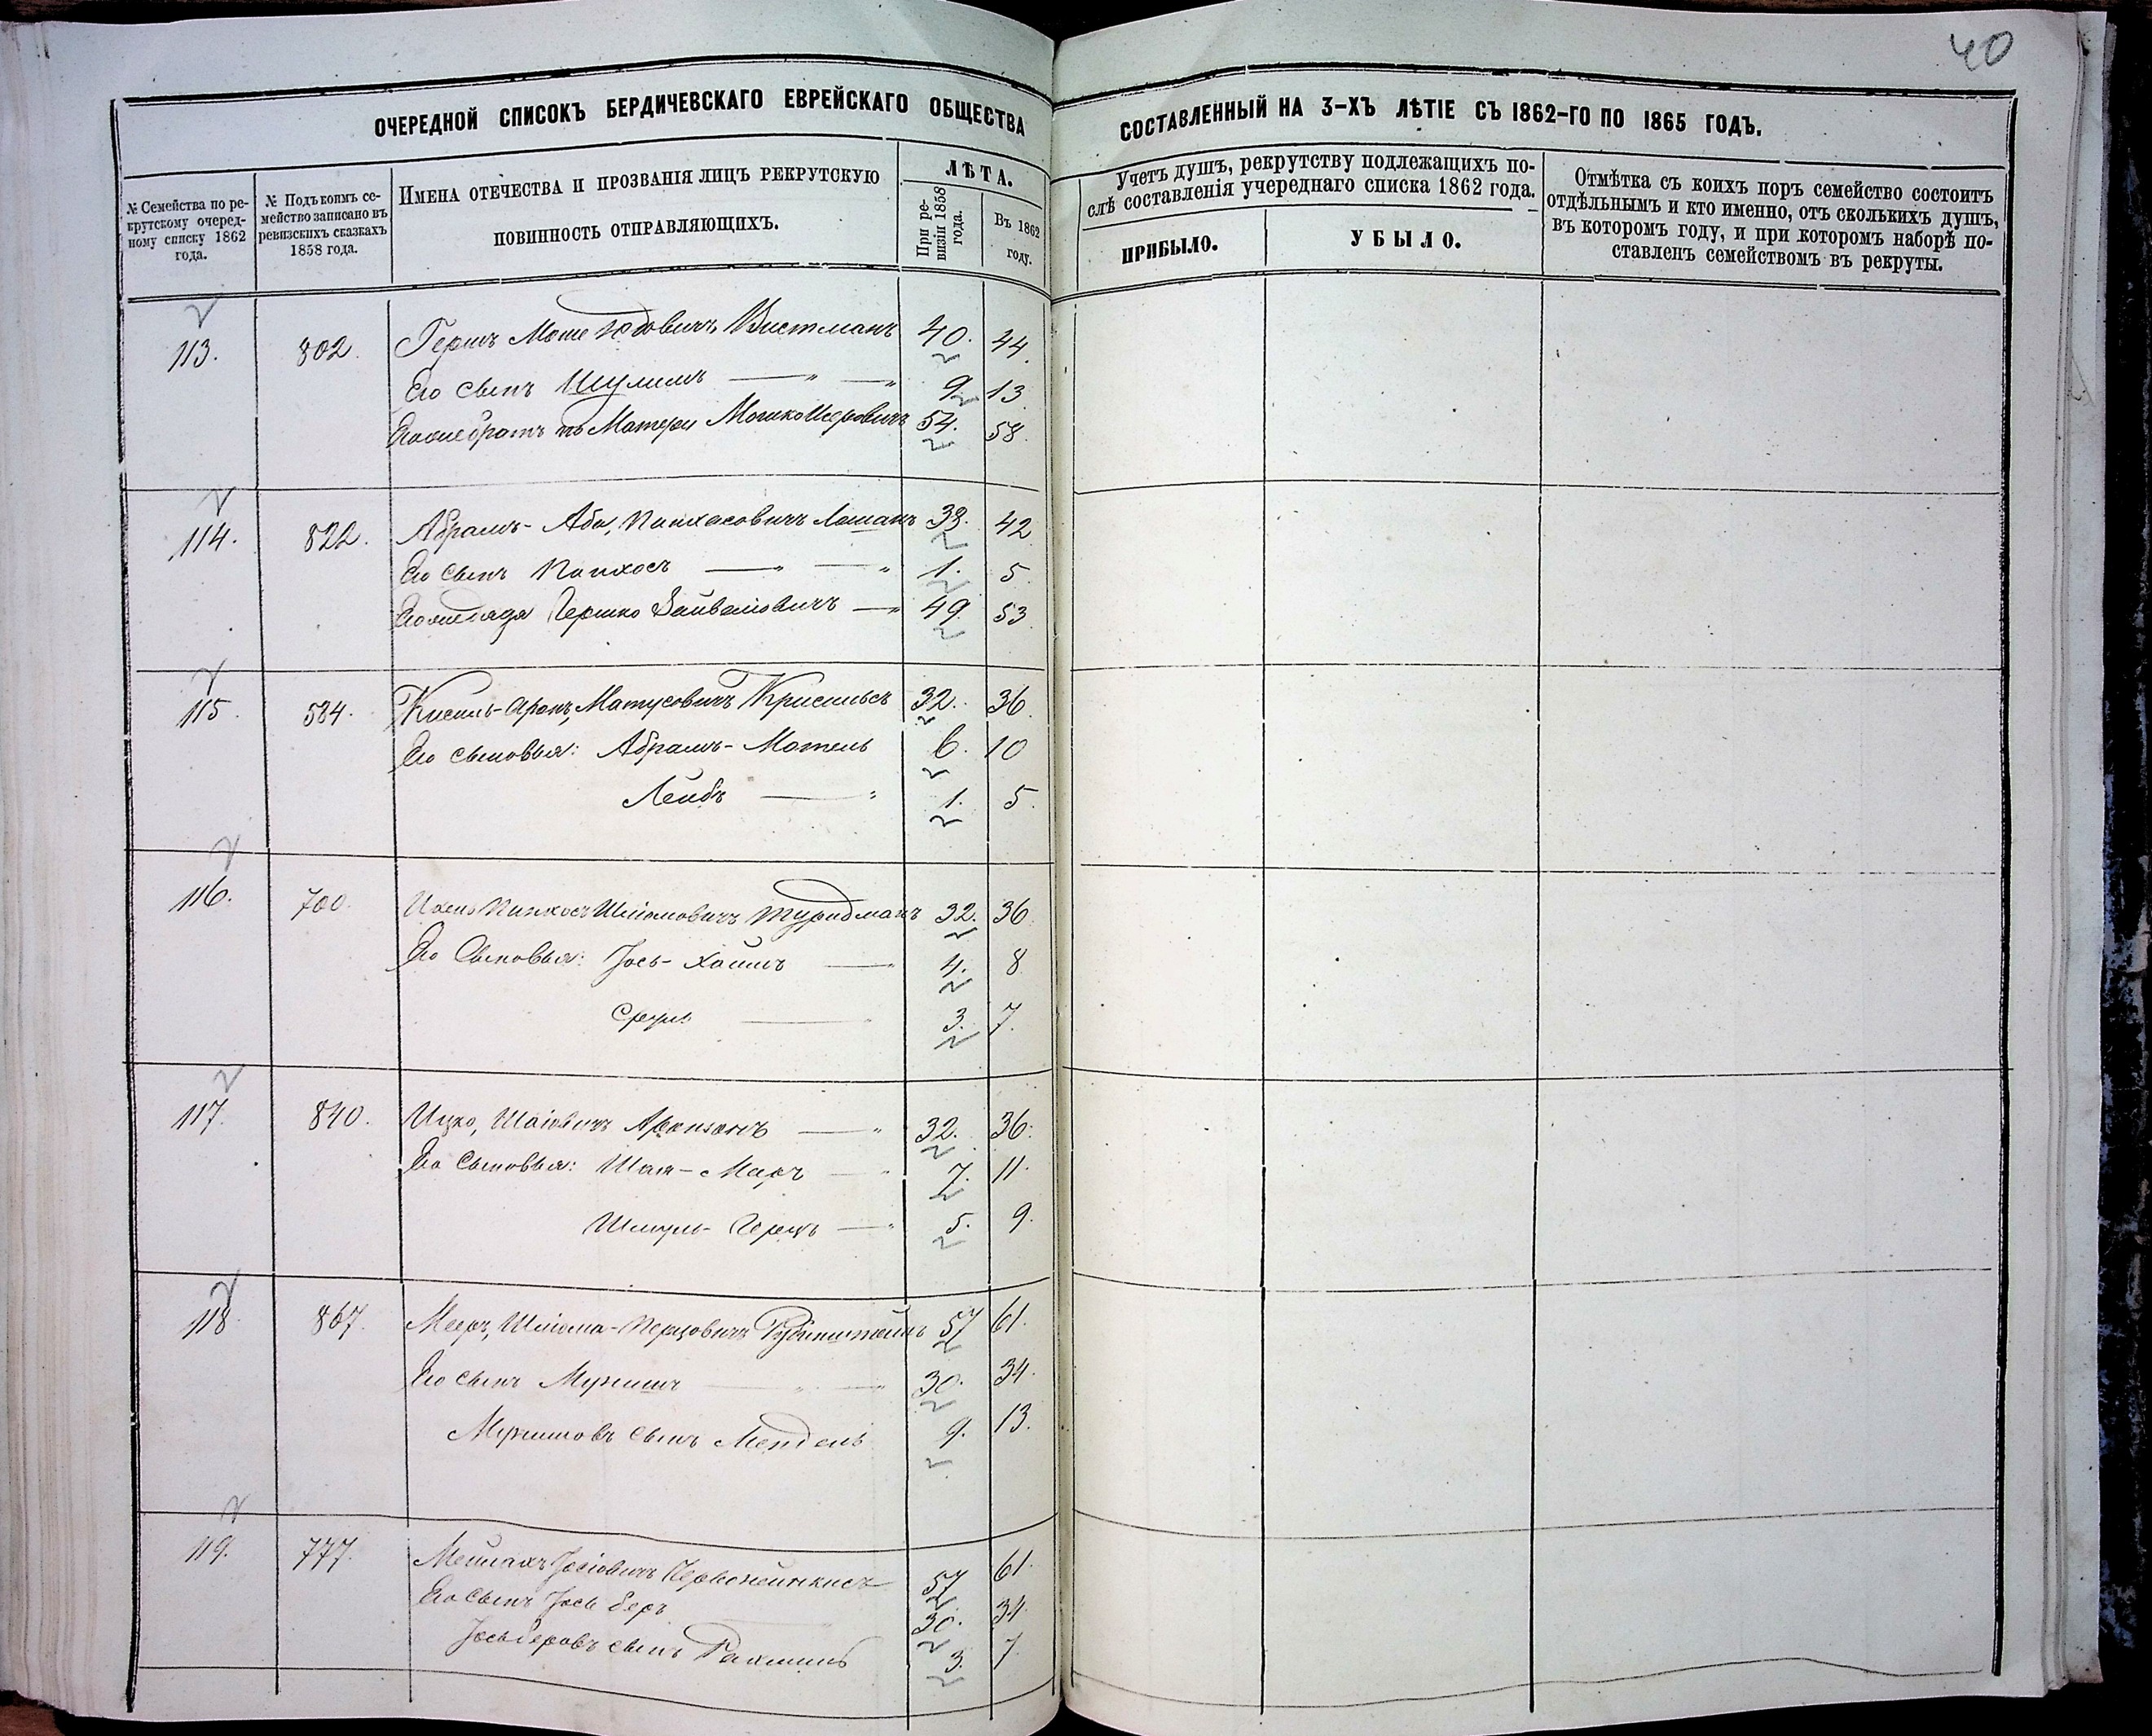 40
ОЧЕРЕДНОЙ СПИСОКЪ БЕРДИЧЕВСКАГО ЕВРЕЙСКАГО ОБЩЕСТВА СОСТАВЛЕННЫЙ НА 3-ХЪ ЛѢТІЕ СЪ 1862-ГО ПО 1865 ГОДЪ.
№ Семейства по рекрутскому очередному списку 1862 года.
№ Подъ коимъ семейство записано въ ревизскихъ сказкахъ 1858 года.
ИМЕНА ОТЕЧЕСТВА И ПРОЗВАНІЯ ЛИЦЪ РЕКРУТСКУЮ ПОВИННОСТЬ ОТПРАВЛЯЮЩИХЪ.
ЛѢТА.
При ревизіи 1858 года.
Въ 1862 году.
Учетъ душъ, рекрутству подлежащихъ послѣ составленія учереднаго списка 1862 года.
ПРИБЫЛО.
УБЫЛО.
Отмѣтка съ коихъ поръ семейство состоитъ отдѣльнымъ и кто именно, отъ сколькихъ душъ, въ которомъ году, и при которомъ наборѣ поставленъ семействомъ въ рекруты.
113. 802. Гершъ Моше Юдовичъ Вистманъ 40. 44.
Его сынъ Шулимъ — " — " 9 13
Его же братъ по Матери Мошко 54. 58.
114. 822. Абрамъ-Аба, Пинхасовичъ 38. 42
Его сынъ Пинхосъ — " — " 1. 5.
Его же дядя Гершко Зайвеловичъ — " 49. 53
115. 584. Кисиль-Аронъ, Матусовичъ 32. 36
Его сыновья: Абрамъ-Мотель 6. 10
Лейбъ — " 1. 5.
116. 700. Пинхосъ Шліомовичъ 32. 36
Его Сыновья: Іось-Хаимъ — " 4. 8
Сруль — " 3. 7.
117. 840. Ицко, Шаіовичъ Аронзонъ — " 32. 36.
Его Сыновья: Шая-Меръ — " 7. 11.
Шмуль-Герцъ — " 5. 9.
118. 867. Мееръ, Шліома-Перцовичъ Рубинштейнъ 57 61.
Его сынъ Мунишъ — " — " 30. 34.
Мунишовъ сынъ Мендель 9. 13.
119. 777. Мейлахъ Іосіовичъ 57. 61.
Его сынъ Іось беръ 30. 34.
Іосьберовъ сынъ Рахмиль 3. 7